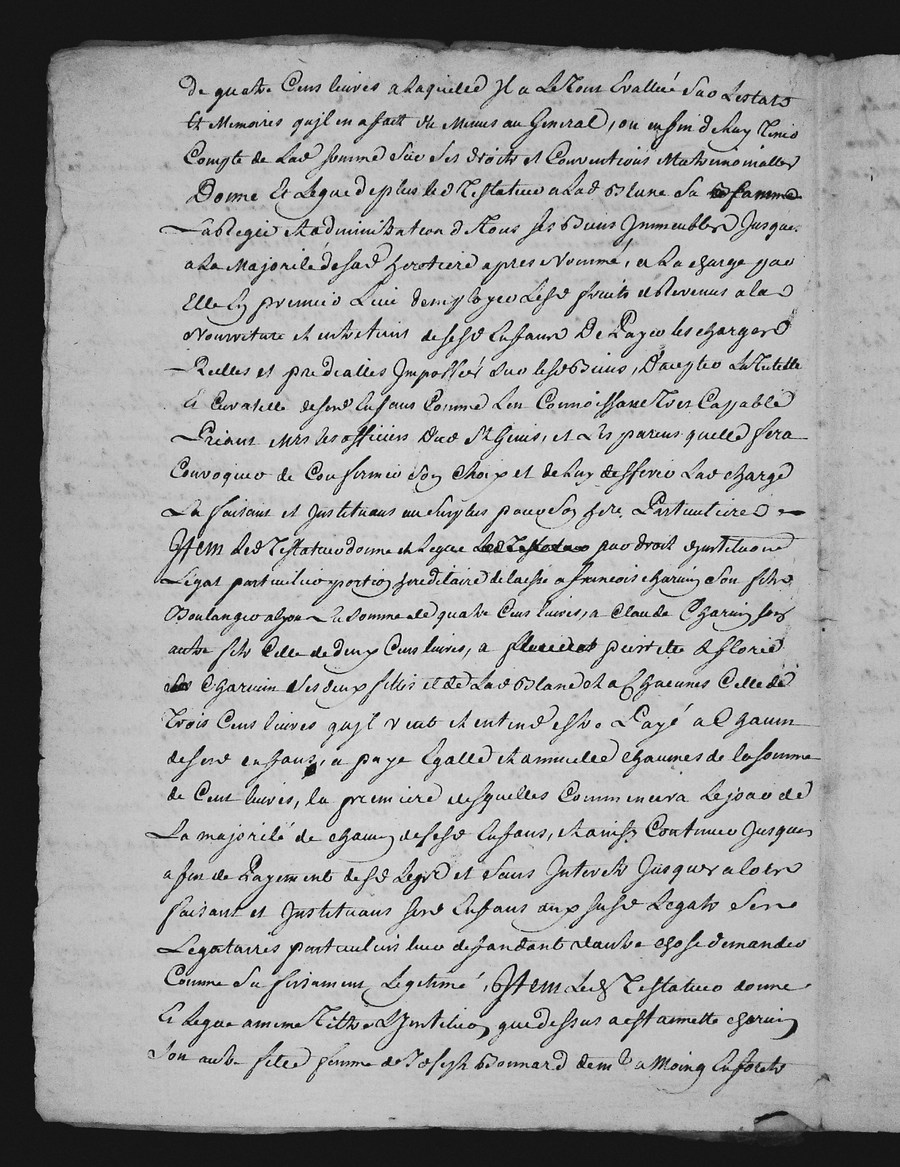 de quatre Cens livres a laquelled Jl a Le tout Evallué Sur Lestats
Et Memoires qujl en a fait du Menus au General, ou enfin de luy tenir
Compte de Lad somme sur ses droits et Conventions Matrimonialles
Donne Et Legue de plus led Testateur a Lad Blanc Sa femme
La Regie et administration de tous ses Biens Jmmeubles Jusques
a La Majorité de sad heritiere apres Nommé, a La charge par
Elle En premier Lieu demployer Lesd fruits et Revenus a la
Nourriture et entretiens de sesd Enfans De Payer les charges
Reelles et prediales Jmposées sur lesd Biens, Daccepter La Tutelle
Et Curatelle desend Enfans Comme Len Connoissant tres Capable
Priant Mrs les officiers dud St Genis, et Les parens quelle fera
Convoquer de Confirmer Son Choix et de luy defferer Lad charge
La faisant et Jnstituant au surplus pour Son here Particuliere
Jtem Led Testateur donne et Legue par droit djnstitution
Legat particulier portion hereditaire delaissé a francois charvin Son fils
Boulanger a Lyon La somme de quatre Cens livres, a Claude Charvin son
autre fils Celle de deux Cens livres, a pierrette et florie
Charvin ses deux filles et de Lad Blanc et a Chacunes Celle de
Trois Cens livres qujl veut et entend estre Payé a Chacun
desend enfans, a paye Egalle et annuelle chacunes de la somme
de Cent livres, la premiere desquelles Commencera Le jour de
La majorité de chacun desesd Enfans, et ainsy Continuer Jusques
a fin de Payement desd Legts et Sans Jnterets Jusques a lors
faisant et Jnstituant send Enfans aux susd Legats Ses
Legataires particuliers leur deffandant dautre chose demander
Comme Suffisament Legitimé, Jtem Led Testateur donne
Et Legue a meme Titre djnstitution que dessus a Estiennette charvin
Son autre fille femme de Joseph Bonnard demt a Moing En forets